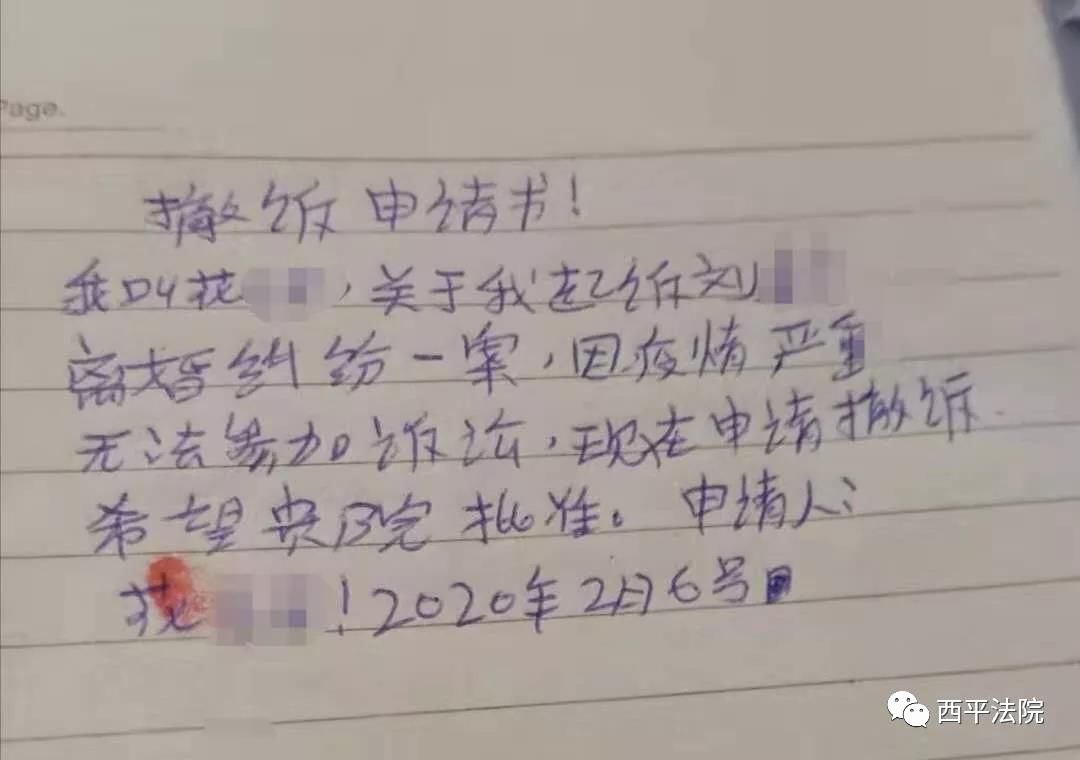 Page.
撤饭申请书！
我叫花，关于我起饭刘
离婚纠纷一案，因疫情严重
无法参加饭讼，现在申请撤诉
希望贵院批准。申请人：
花！2020年2月6号
西平法院